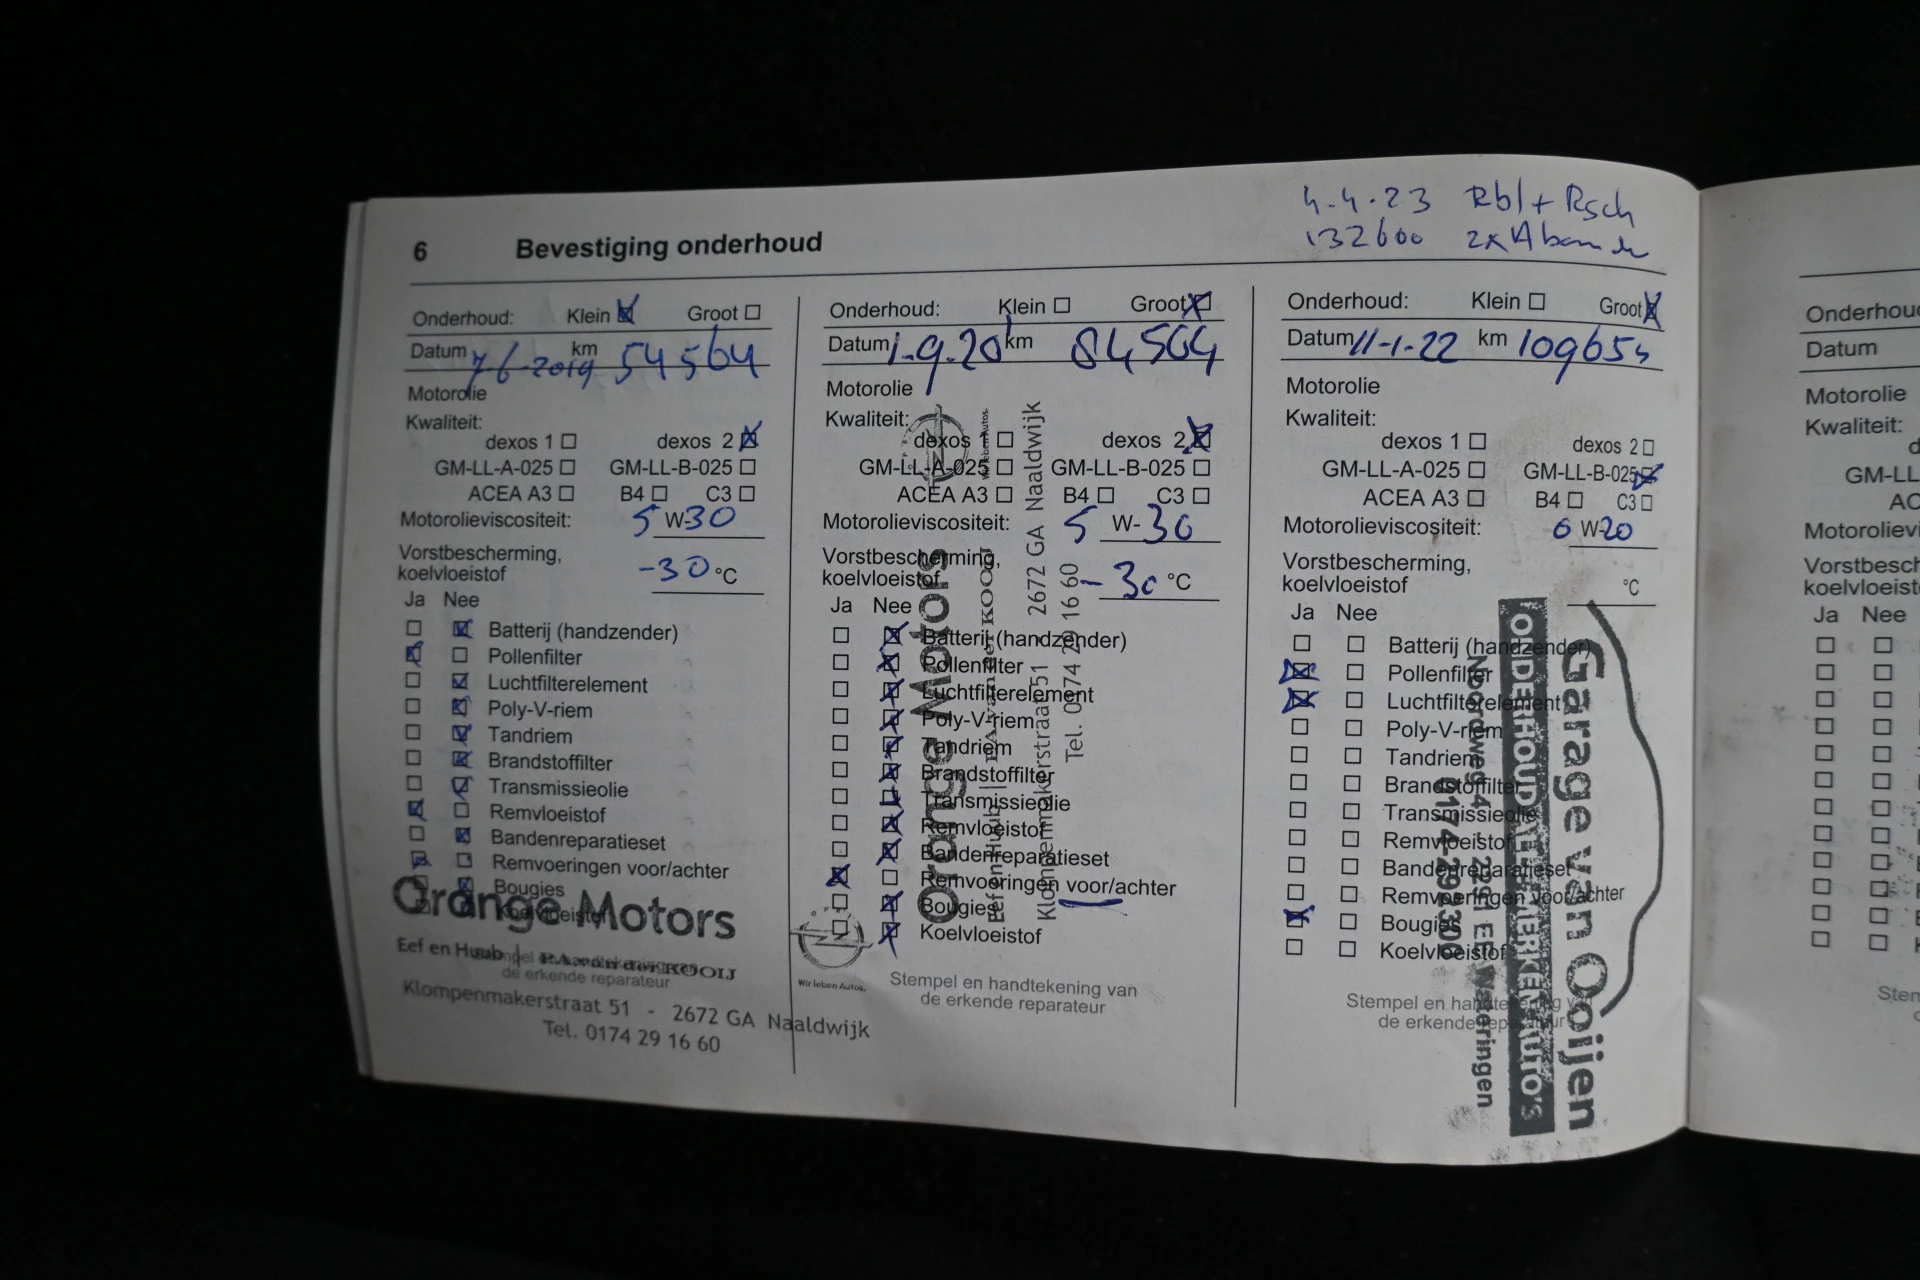 4.4.23 Rbl + Rsch
132600 2x
6 Bevestiging onderhoud
Onderhoud: Klein Groot
Datum 7-6-2019 km 54564
Motorolie
Kwaliteit:
dexos 1 dexos 2
GM-LL-A-025 GM-LL-B-025
ACEA A3 B4 C3
Motorolieviscositeit: 5 W-30
Vorstbescherming,
koelvloeistof -30 °C
Ja Nee
Batterij (handzender)
Pollenfilter
Luchtfilterelement
Poly-V-riem
Tandriem
Brandstoffilter
Transmissieolie
Remvloeistof
Bandenreparatieset
Remvoeringen voor/achter
Bougies
Koelvloeistof
Orange Motors
Eef en Huub | P.A. van der KOOIJ
de erkende reparateur
Klompenmakerstraat 51 - 2672 GA Naaldwijk
Tel. 0174 29 16 60
Onderhoud: Klein Groot
Datum 1-9-20 km 84564
Motorolie
Kwaliteit:
dexos 1 dexos 2
GM-LL-A-025 GM-LL-B-025
ACEA A3 B4 C3
Motorolieviscositeit: 5 W-30
Vorstbescherming,
koelvloeistof -30 °C
Ja Nee
Batterij (handzender)
Pollenfilter
Luchtfilterelement
Poly-V-riem
Tandriem
Brandstoffilter
Transmissieolie
Remvloeistof
Bandenreparatieset
Remvoeringen voor/achter
Bougies
Koelvloeistof
Wir leben Autos.
Orange Motors
Eef en Huub | P.A. van der KOOIJ
Klompenmakerstraat 51 - 2672 GA Naaldwijk
Tel. 0174 29 16 60
Wir leben Autos.
Stempel en handtekening van
de erkende reparateur
Onderhoud: Klein Groot
Datum 11-1-22 km 109654
Motorolie
Kwaliteit:
dexos 1 dexos 2
GM-LL-A-025 GM-LL-B-025
ACEA A3 B4 C3
Motorolieviscositeit: 0 W-20
Vorstbescherming,
koelvloeistof °C
Ja Nee
Batterij (handzender)
Pollenfilter
Luchtfilterelement
Poly-V-riem
Tandriem
Brandstoffilter
Transmissieolie
Remvloeistof
Bandenreparatieset
Remvoeringen voor/achter
Bougies
Koelvloeistof
Garage van Ooijen
ONDERHOUD ALLE MERKEN AUTO'S
Noordweg 4 - 2291 EE Wateringen
0174-292300
Stempel en handtekening van
de erkende reparateur
Onderhoud
Datum
Motorolie
Kwaliteit:
d
GM-LL
AC
Motorolievi
Vorstbesch
koelvloeist
Ja Nee
Sten